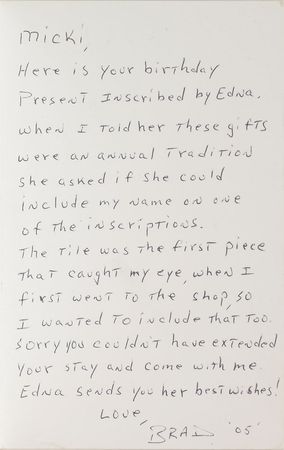 Micki,
Here is your birthday
Present Inscribed by Edna.
When I Told her These gifts
were an annual Tradition
she asked if she could
include my name on one
of the inscriptions.
The Tile was the first piece
That caught my eye, when I
first went to the shop, so
I wanted To include That Too.
Sorry you couldn't have extended
your stay and come with me.
Edna sends you her best wishes!
Love,
BRAD '05'